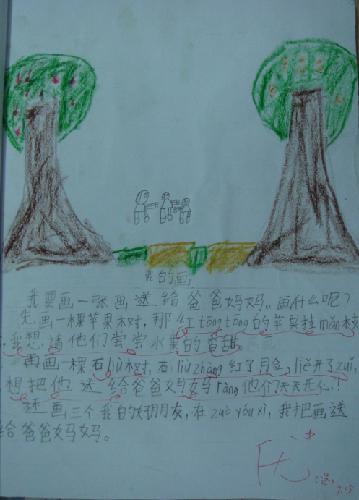 我的画
我要画一张画送给爸爸妈妈。画什么呢?
先画一棵苹果树,那红tōng tōng的苹果挂mǎn树
,我想请他们尝尝水果的香甜。
再画一棵石liu树,石liu zhāng红了月会,liě开了zuǐ,
想把他送给爸爸妈妈ràng他们天天开心!
还画三个我的好朋友,在zuò yóu xì,我把画送
给爸爸妈妈。
优